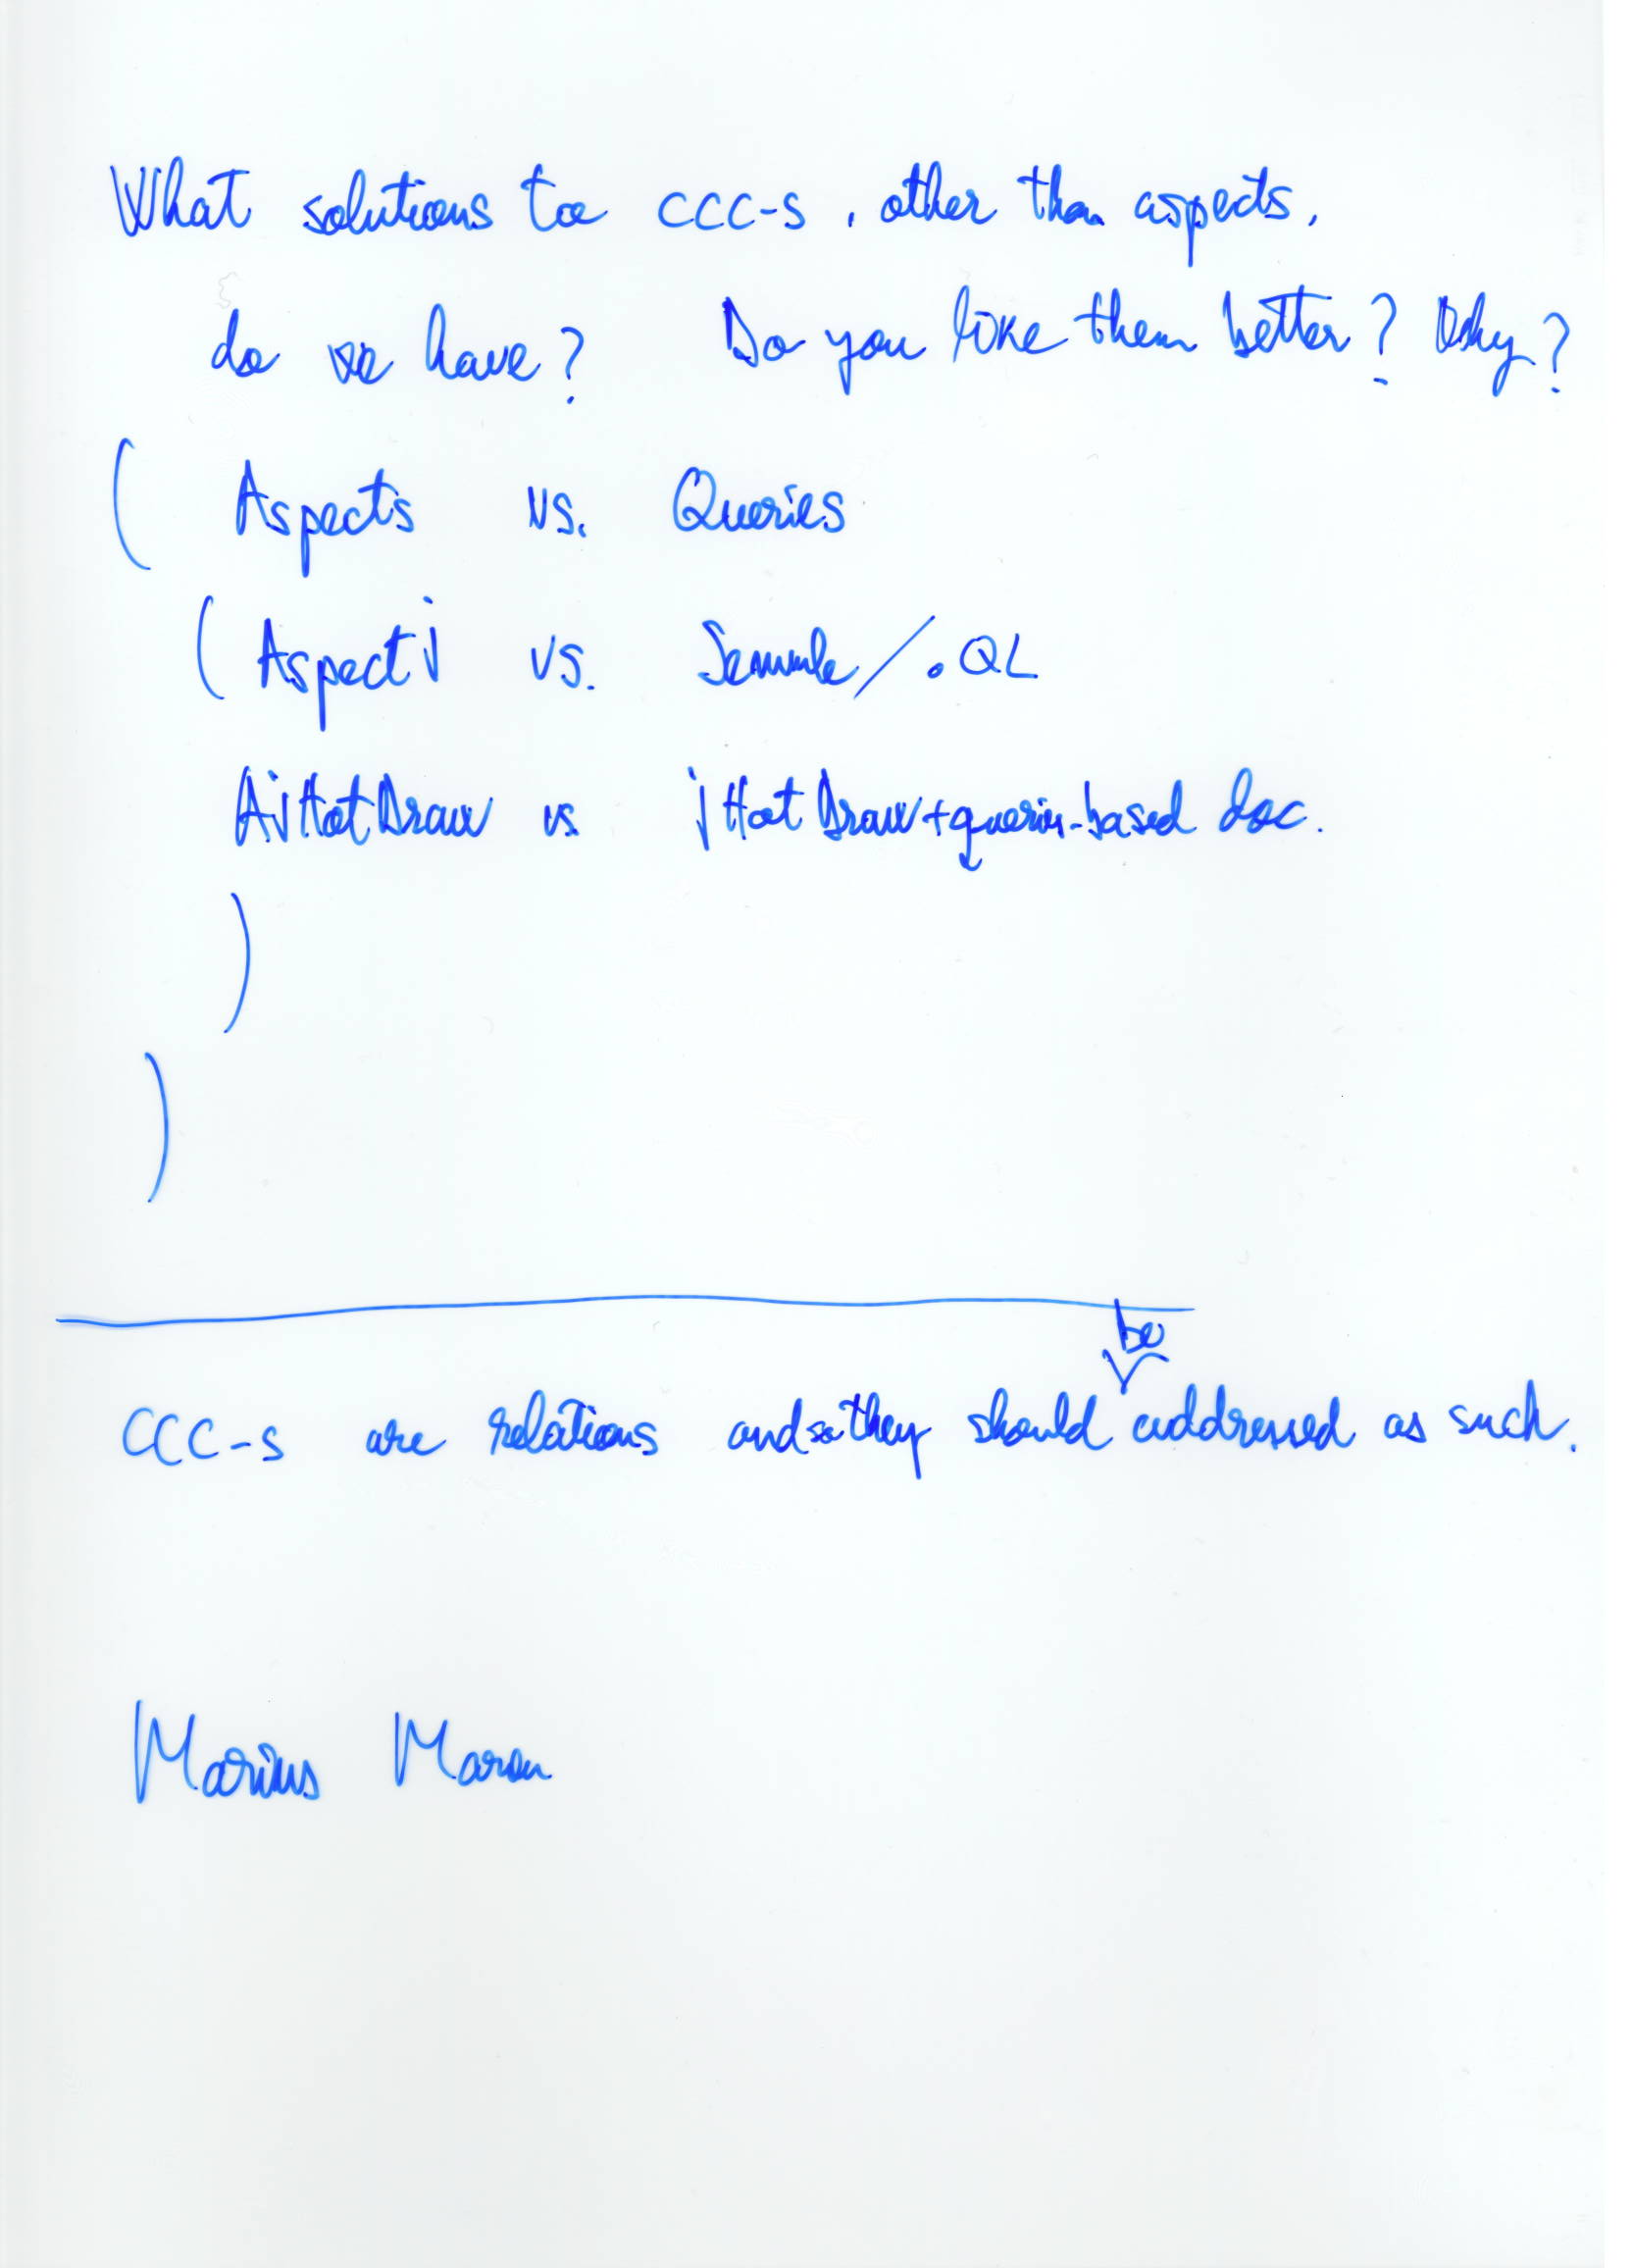 What solutions to CCC-s, other than aspects,
do we have? Do you like them better? Why?
( Aspects vs. Queries
( Aspectj vs. Semmle/.QL
AjHotDraw vs jHotDraw+queries-based doc.
)
)
be
CCC-s are relations and so they should addressed as such.
Marius Marin